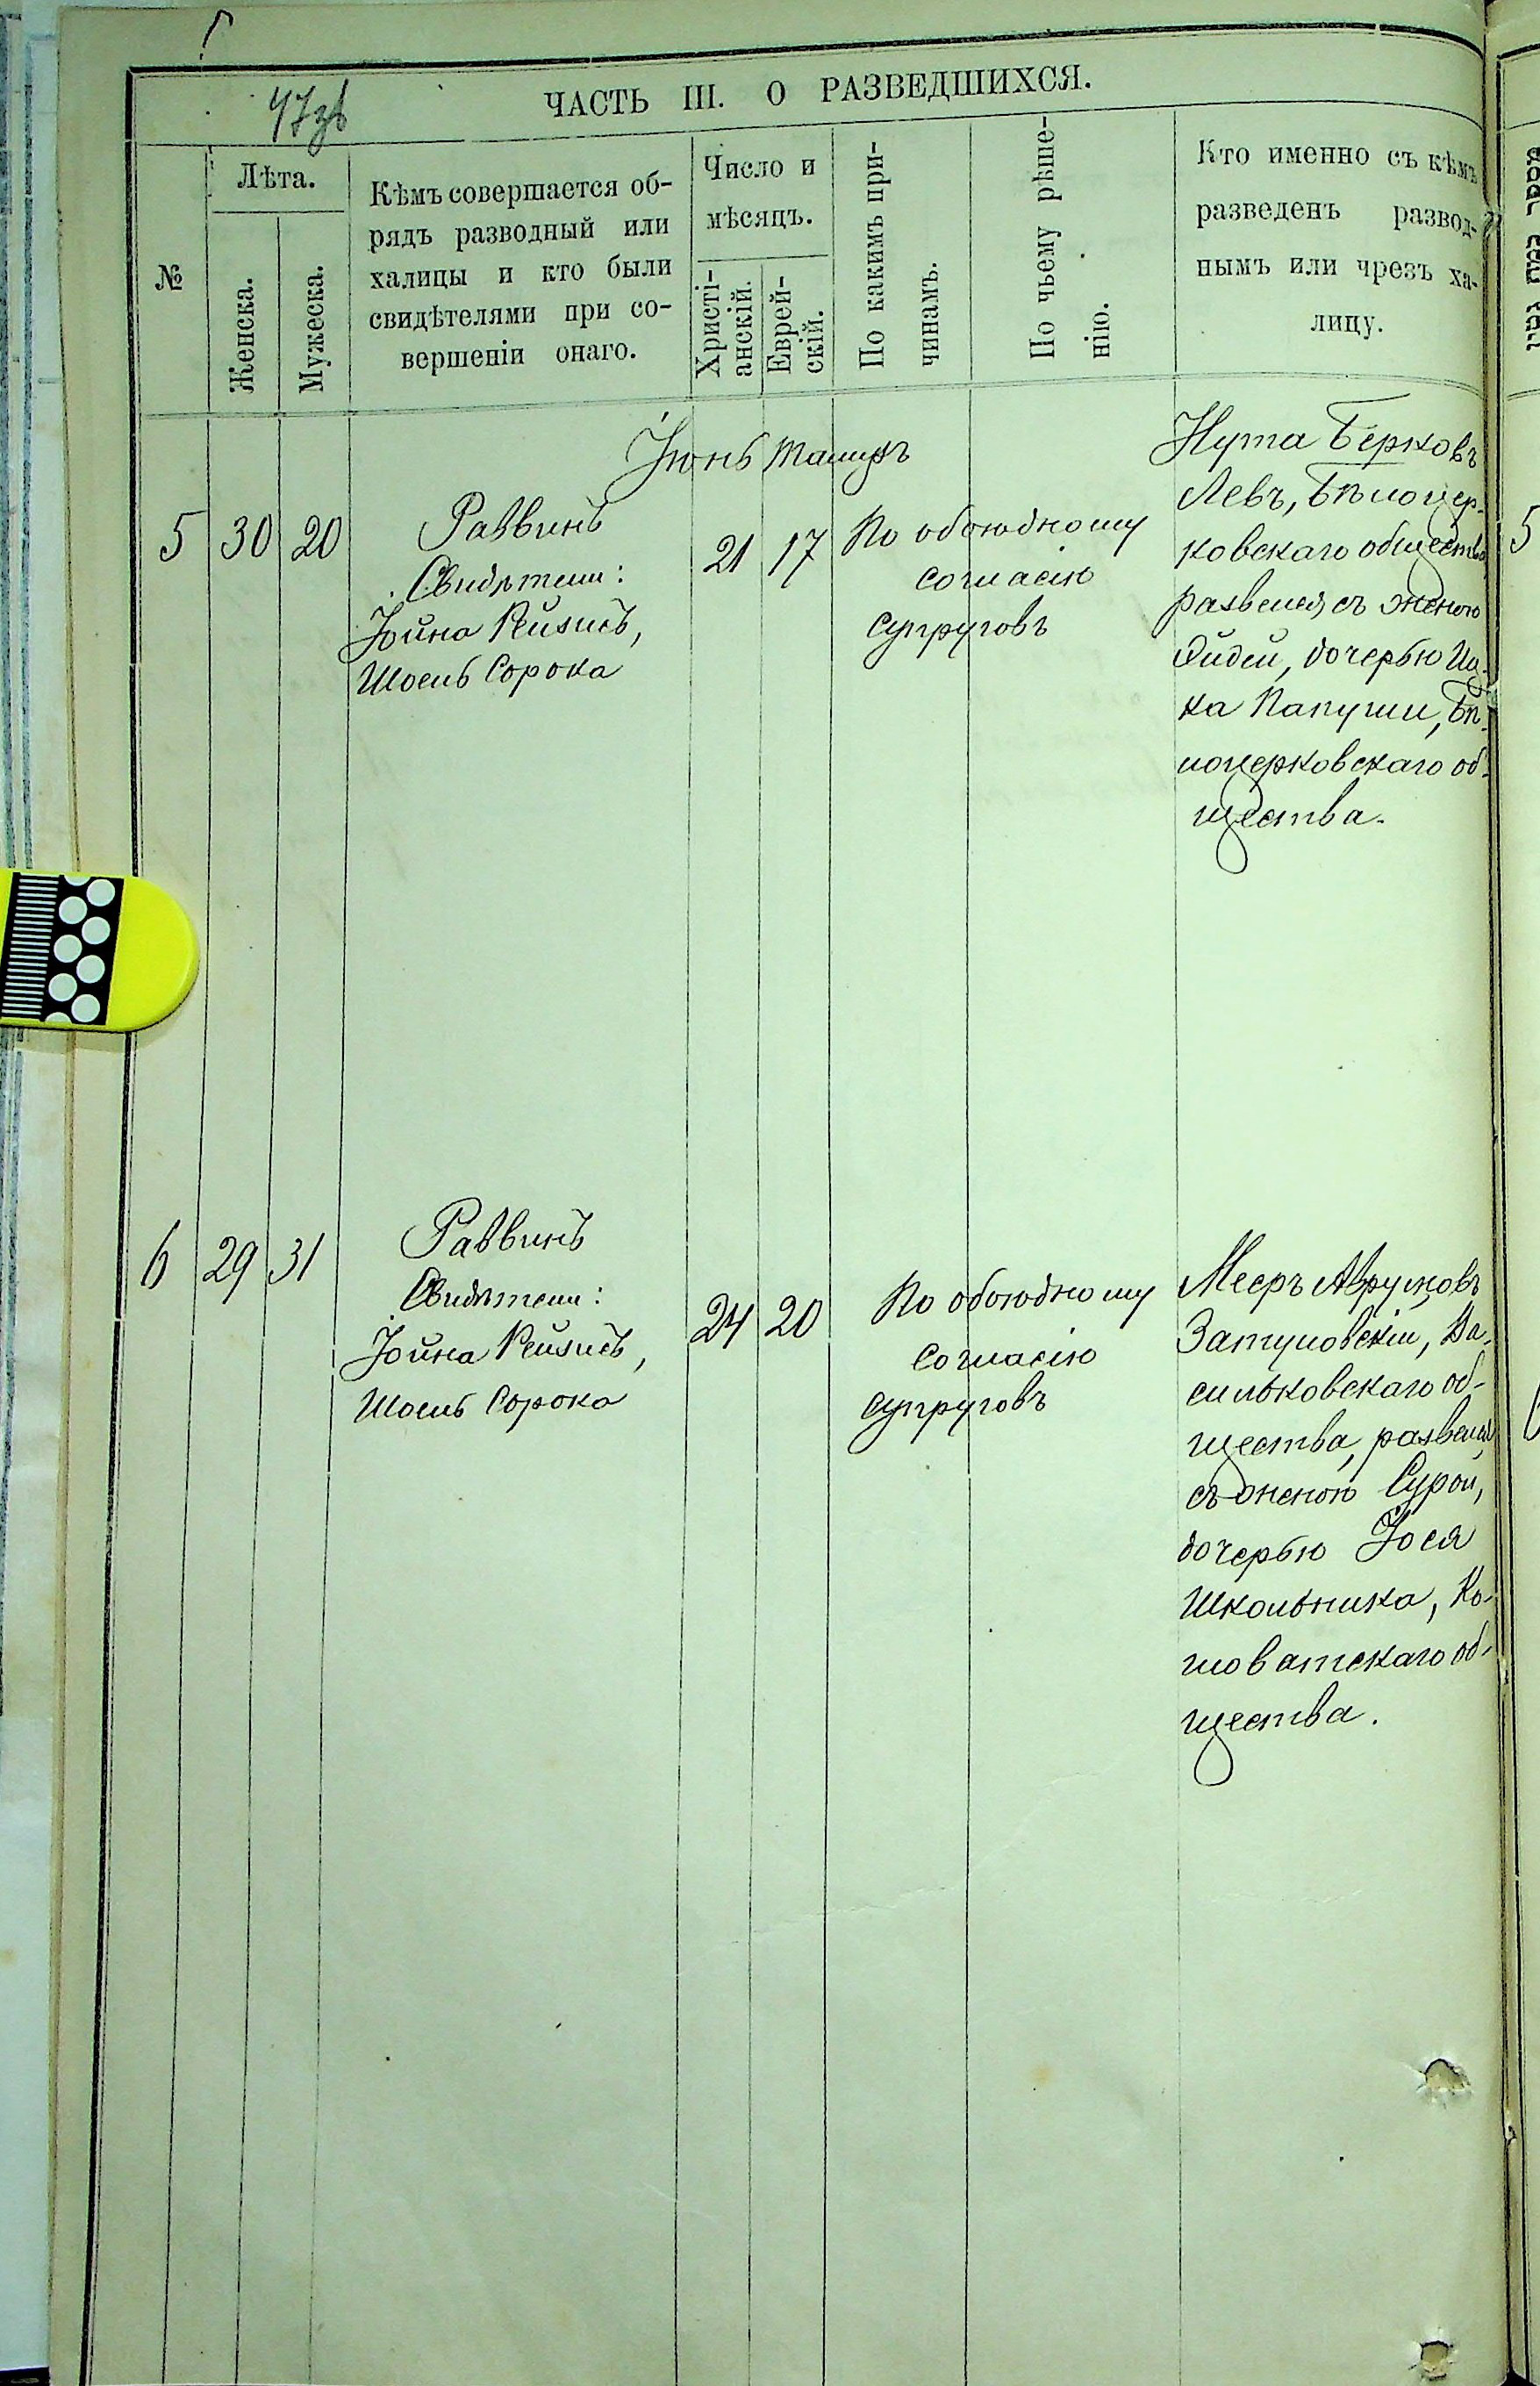 47зв
ЧАСТЬ III. О РАЗВЕДШИХСЯ.
№
Лѣта.
Женска.
Мужеска.
Кѣмъ совершается об-
рядъ разводный или
халицы и кто были
свидѣтелями при со-
вершеніи онаго.
Число и
мѣсяцъ.
Христі-
анскій.
Еврей-
скій.
По какимъ при-
чинамъ.
По чьему рѣше-
нію.
Кто именно съ кѣмъ
разведенъ развод-
нымъ или чрезъ ха-
лицу.
Іюнь Тамузъ
5 30 20
Раввинъ
Свидѣтели:
Іойна Рейзисъ,
Шоель Сорока
21 17
По обоюдному
согласію
супруговъ
Нута Берковъ
Левъ, Бѣлоцер-
ковскаго общества
развелся съ женою
Фйдей, дочерью Иц-
ка Папуши, Бѣ-
лоцерковскаго об-
щества.
6 29 31
Раввинъ
Свидѣтели:
Іойна Рейзисъ,
Шоель Сорока
24 20
По обоюдному
согласію
супруговъ
Мееръ Аврумовъ
Затуловскій, Ва-
сильковскаго об-
щества, развелся
съ женою Сурой,
дочерью Іося
Школьника, Ко-
шоватскаго об-
щества.
5